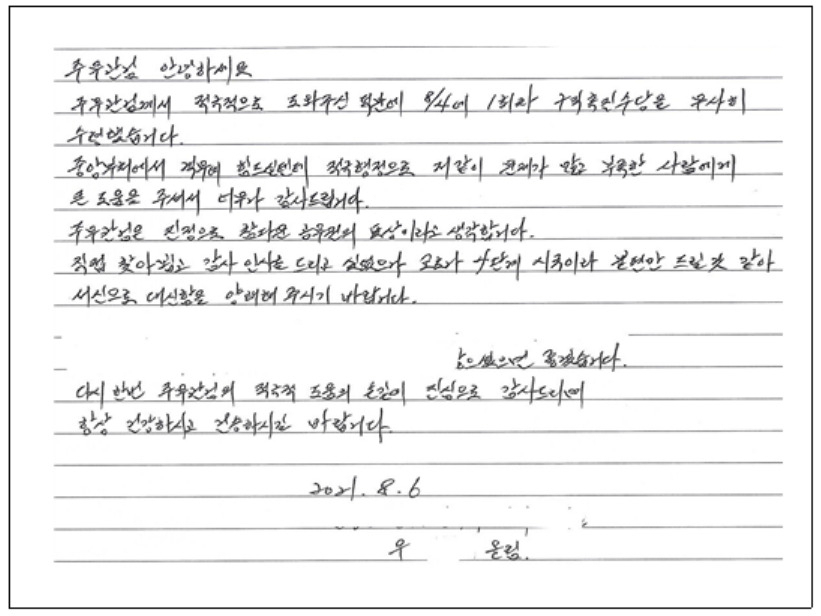 주무관님 안녕하세요
주무관님께서 적극적으로 도와주신 덕분에 8/4에 1회차 구직촉진수당을 무사히
수령했습니다.
중앙부처에서 격무에 힘드실텐데 적극행정으로 저같이 문제가 많고 부족한 사람에게
큰 도움을 주셔서 너무나 감사드립니다.
주무관님은 진정으로 참다운 공무원의 표상이라고 생각합니다.
직접 찾아뵙고 감사 인사를 드리고 싶었으나 코로나 4단계 시국이라 불편만 드릴 것 같아
서신으로 대신함을 양해해 주시기 바랍니다.
았으면 좋겠습니다.
다시 한번 주무관님의 적극적 도움의 손길에 진심으로 감사드리며
항상 건강하시고 건승하시길 바랍니다.
2021. 8. 6
우 올림.